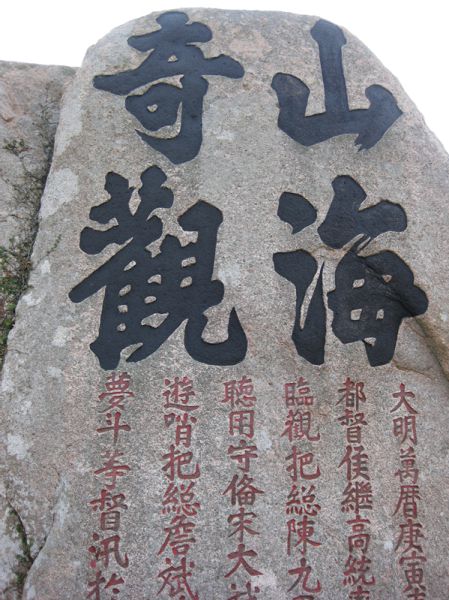 山海
奇觀
大明萬曆庚寅
都督侯繼高統
臨觀把總陳九
聽用守偹宋大
遊哨把總詹斌
夢斗等督汛於